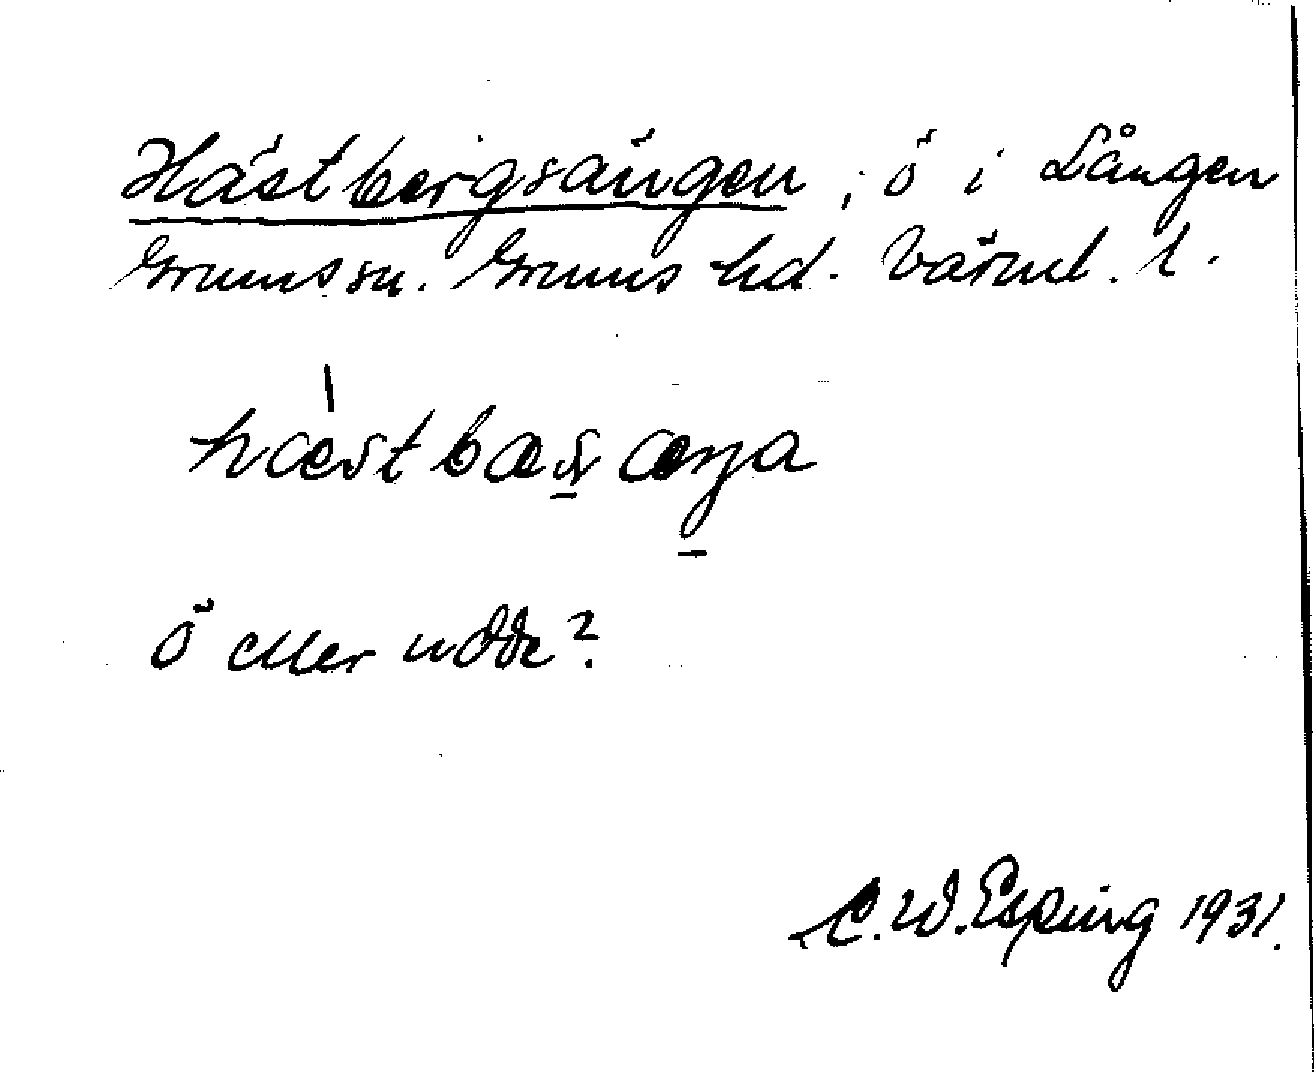 Hästbergsängen, ö i Lången
Grums sn. Grums hd. Värml. l.
hæstbæs̠æŋa
Ö eller udde?
C. W. Esping 1931.